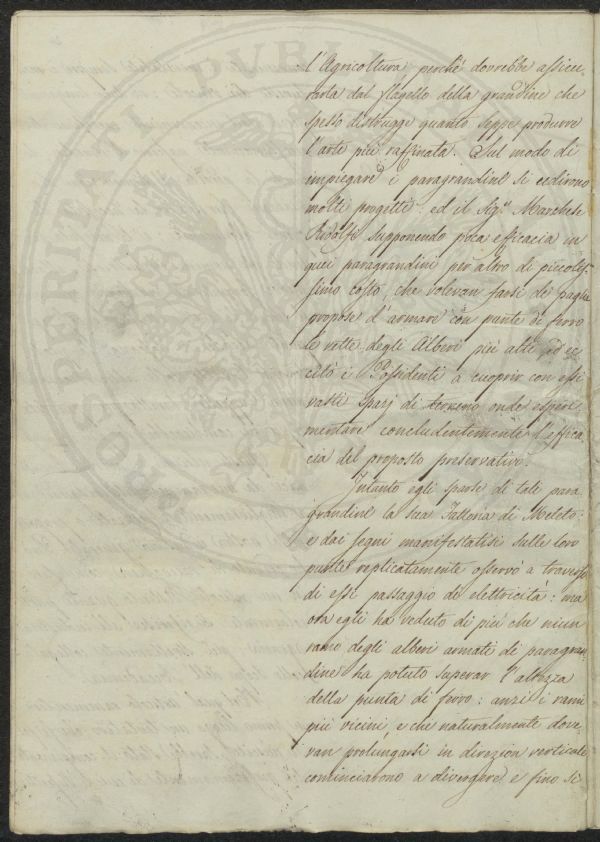 PROSPERITATI PUBLI
l'Agricoltura, perchè dovrebbe assicu-
rarla dal flagello della grandine che
spesso distrugge quanto seppe produrre
l'arte più raffinata. Sul modo di
impiegare i paragrandini si udirono
molti progetti: ed il Sig.r Marchese
Ridolfi supponendo poca efficacia in
quei paragrandini per altro di piccolis-
simo costo, che volevan farsi di paglia
propose d'armare con punte di ferro
le vette degli Alberi più alti ed ec-
citò i Possidenti a cuoprir con essi
vasti spazj di terreno onde esperi-
mentare concludentemente l'effica-
cia del proposto preservativo.
Intanto egli sparse di tali para
grandini la sua Fattoria di Meleto:
e dai segni manifestatisi sulle loro
punte replicatamente osservò a traverso
di essi passaggio di elettricità: ma
ora egli ha veduto di più che niun
ramo degli alberi armati di paragran-
dine ha potuto superar l'altezza
della punta di ferro: anzi i rami
più vicini, e che naturalmente dove-
van prolungarsi in direzion verticale
cominciarono a divergere e fino si